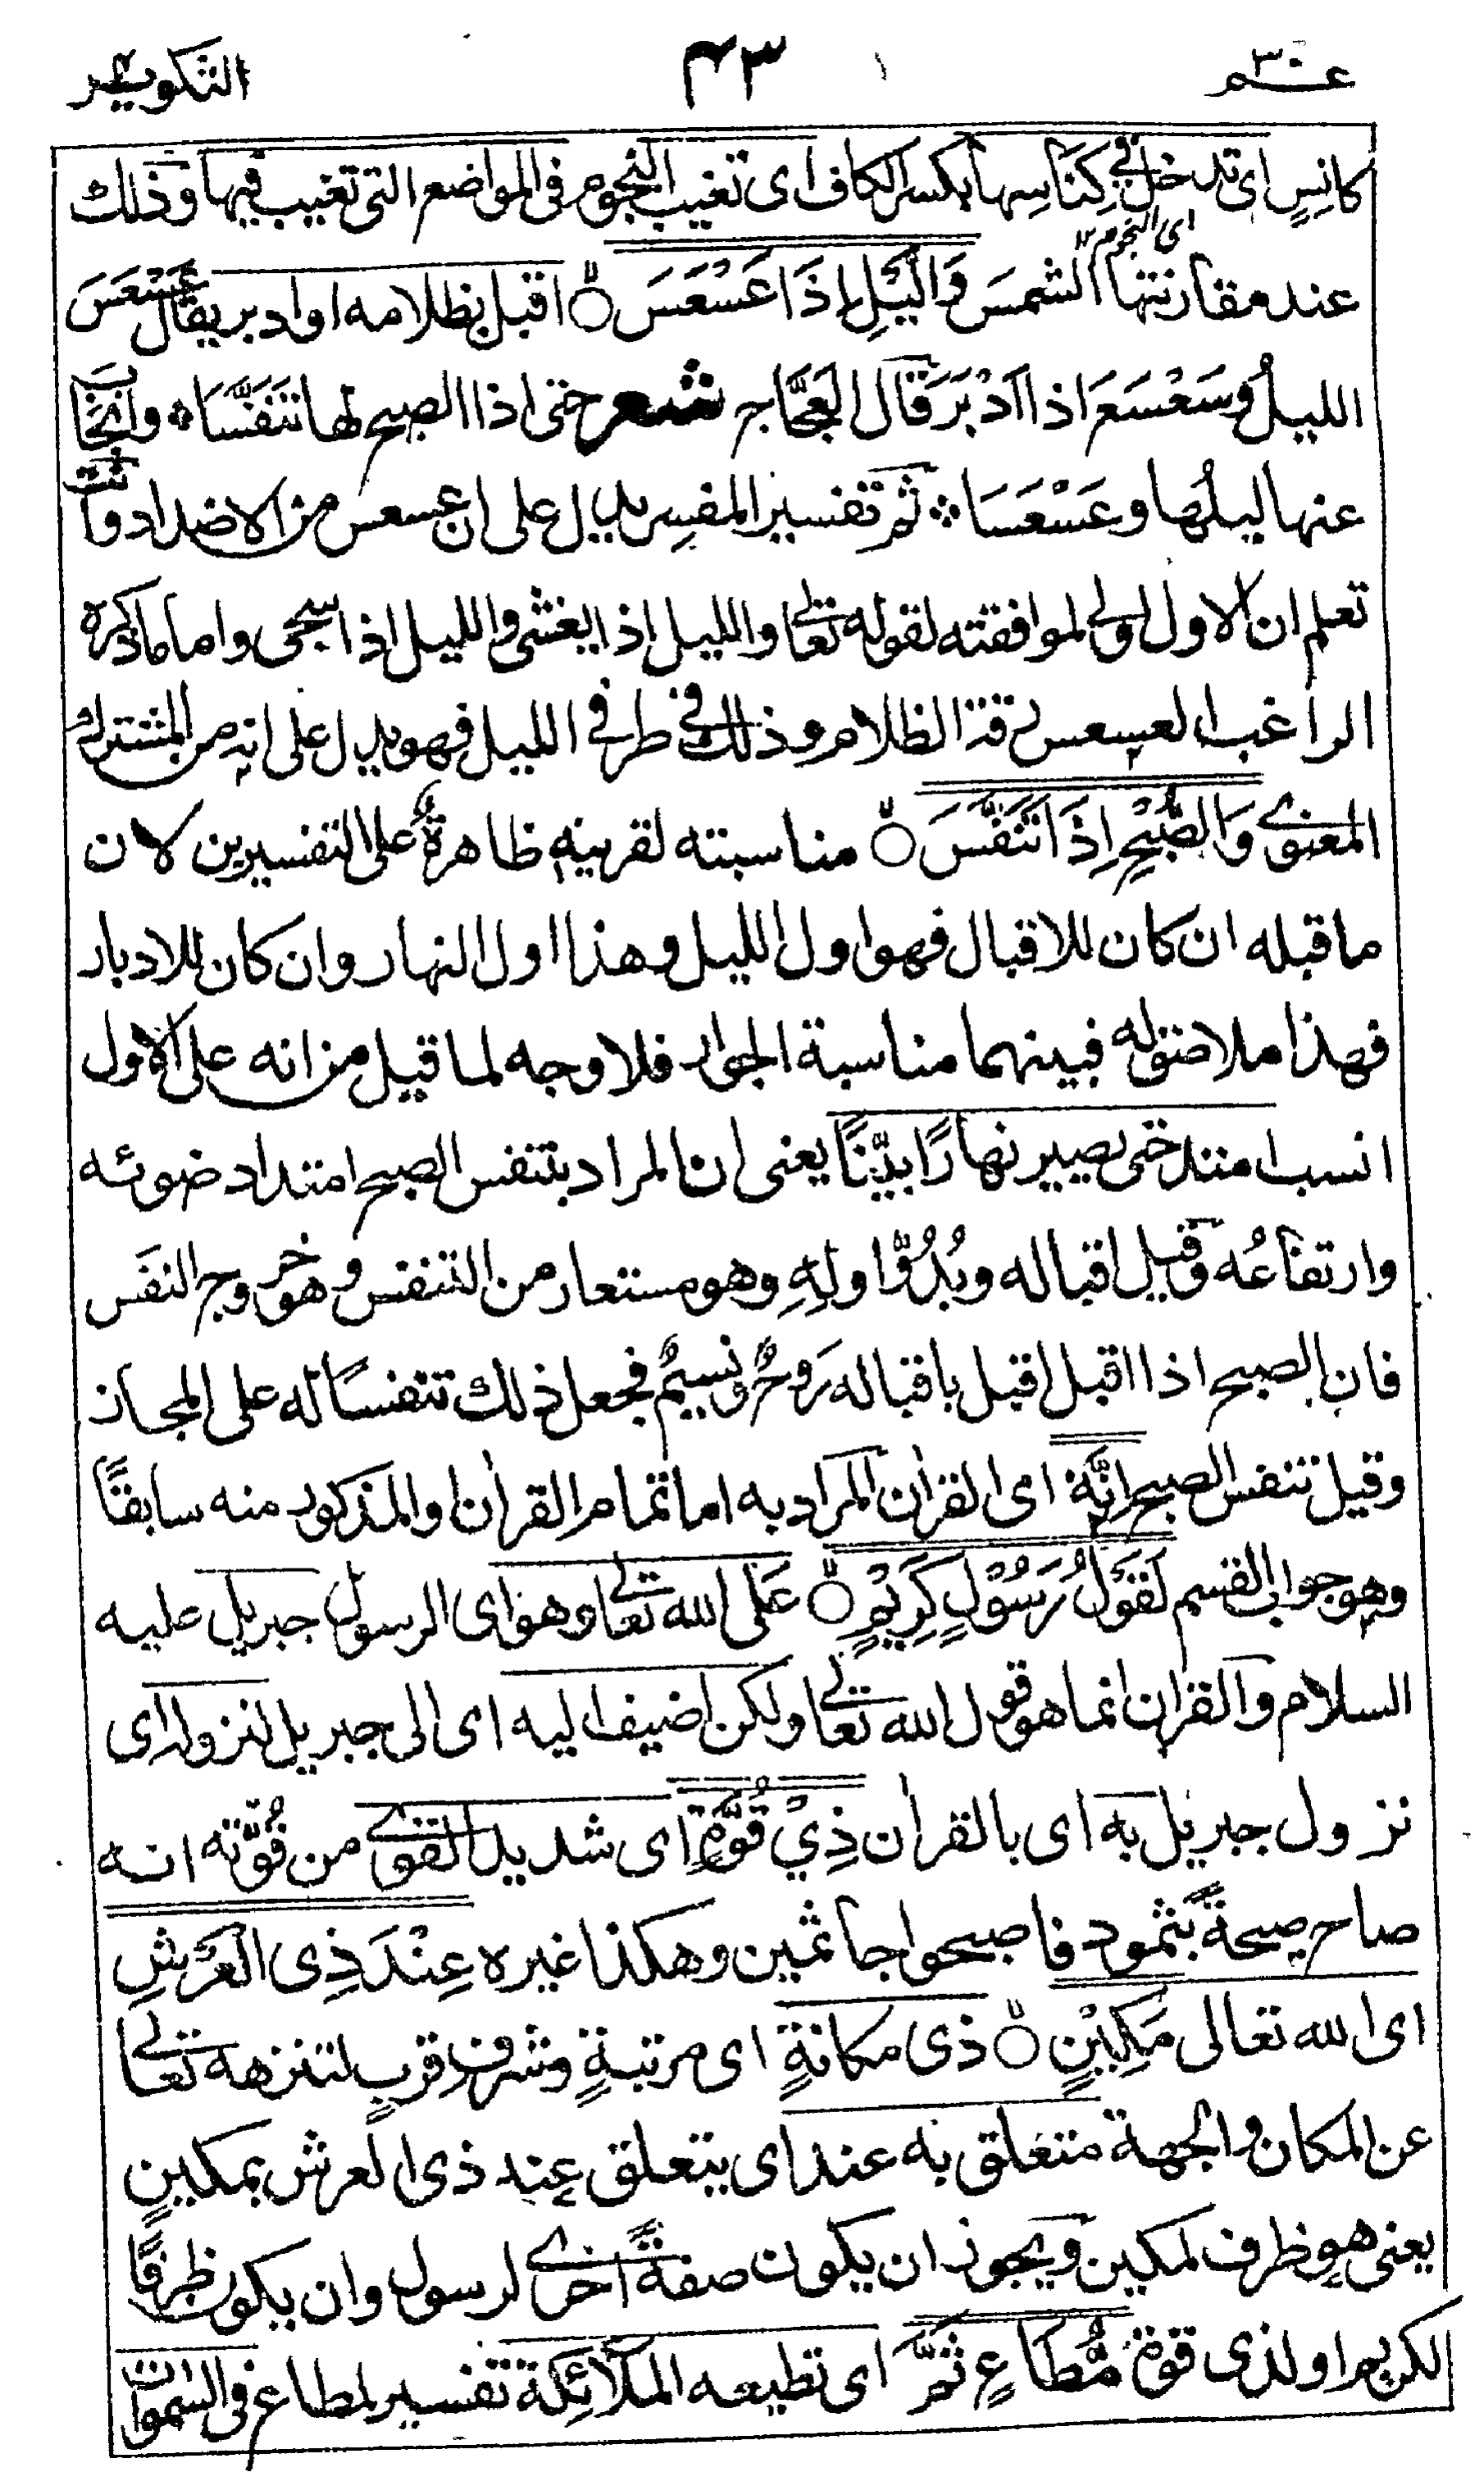 عـــم ٣٠
٤٣
التكوير
كانِسٍ اى تدخل فى كِنَاسِها بكسر الكاف اى تغيب النجوم فى المواضع التى تغيب فيها وذلك
اى النجوم ١٢
عند مقارنتها الشمسَ وَالَّيْلِ اِذَا عَسْعَسَ ۙ اقبل بظلامه او ادبر يقال عَسْعَسَ
الليلُ وسَعْسَعَ اذا اَدْبَرَ قال العجَّاج شعر حتى اذا الصبح لها تَنَفَّسَا ۞ وانجَابَ
عنها ليلُها وعَسْعَسَا ۞ ثم تفسير المفسِر يدل على ان عسعس من الاضداد وانت
تعلم ان الاول اولى لموافقته لقوله تعالى والليل اذا يغشى والليل اذا سجى واما ما ذكره
الراغب العسعس رقة الظلام وذلك فى طرفى الليل فهو يدل على انه من المشترك
المعنوى وَالصُّبْحِ اِذَا تَنَفَّسَ ۙ مناسبته لقرينه ظاهرةٌ على التفسيرين لان
ما قبله ان كان للاقبال فهو اول الليل وهذا اول النهار وان كان للادبار
فهذا ملاصق له فبينهما مناسبة الجوار فلا وجه لما قيل من انه على الاول
انسب امتد حتى يصير نهارًا بيِّنًا يعنى ان المراد بتنفس الصبح امتداد ضوئه
وارتفاعُه وقيل اقباله وبُدُوّ اولِهِ وهو مستعار من التنفس وهو خروج النفَس
فان الصبح اذا اقبل اقبل باقباله رَوحٌ ونسيمٌ فجعل ذلك تنفسًا له على المجاز
وقيل تنفس الصبح اِنَّهٗ اى القران المراد به اما تمام القراٰن او المذكور منه سابقًا
وهو جواب القسم لَقَوْلُ رَسُوْلٍ كَرِيْمٍ ۙ عَلى الله تعالى وهو اى الرسول جبريل عليه
السلام والقران انما هو قول الله تعالى ولكن اضيف اليه اى الى جبريل لنزوله اى
نزول جبريل به اى بالقراٰن ذِيْ قُوَّةٍ اى شديد القوى من قُوّته انه
صاح صيحةً بثمود فاصبحوا جاثمين وهكذا غيره عِنْدَ ذِى الْعَرْشِ
اى الله تعالى مَكِيْنٍ ۙ ذى مكانةٍ اى مرتبةٍ وشرفٍ وقربٍ لتنزهه تعالى
عن المكان والجهة متعلق به عند اى يتعلق عند ذى العرش بمكينٍ
يعنى هو ظرف لمكين ويجوز ان يكون صفةً اخرى لرسول وان يكون ظرفًا
لكريم او لذى قوة مُّطَاعٍ ثَمَّ اى تطيعه الملاَئِكة تفسير لمطاع فى السموات